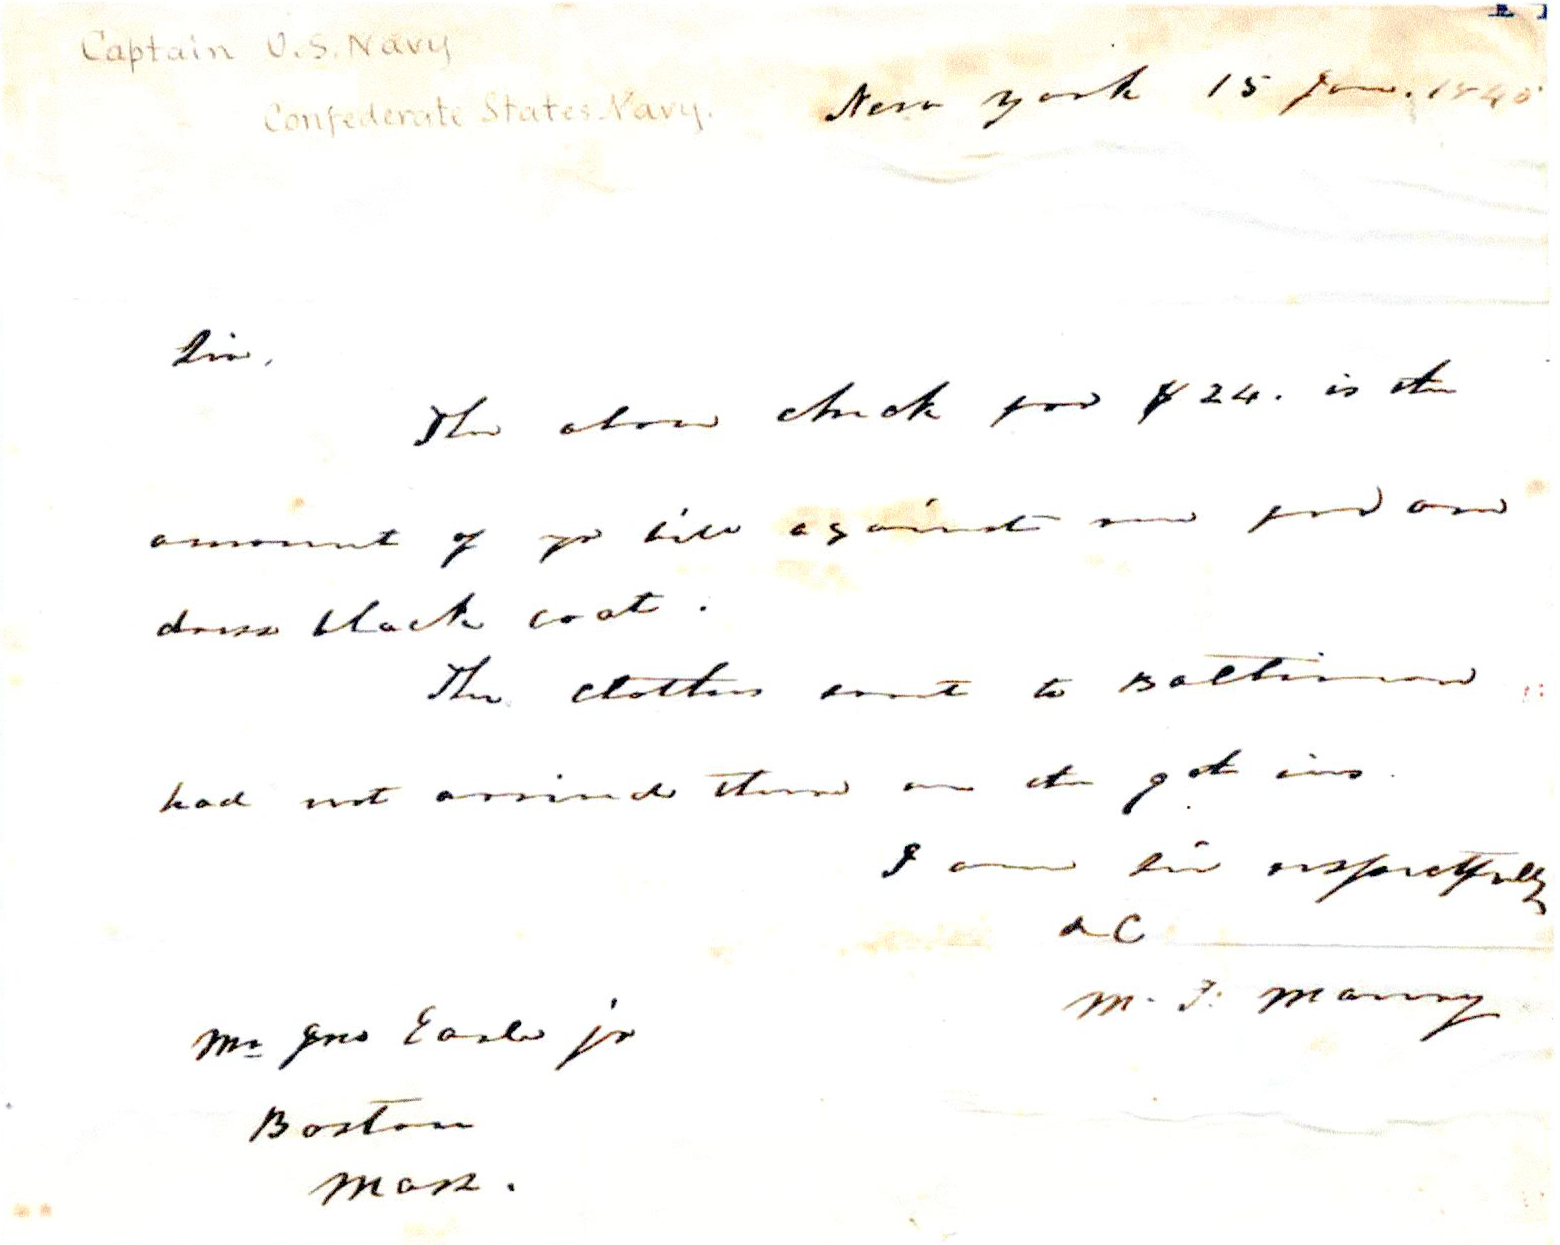 Captain U.S. Navy
Confederate States Navy.
New York 15 Jan. 1840
Sir,
The above check for $24. is the
amount of yr bill against me for one
dress black coat.
The clothes sent to Baltimore
had not arrived there on the 9th ins.
I am Sir respectfully
&C
M. F. Maury
Mr Jno Earle jr
Boston
Mass.